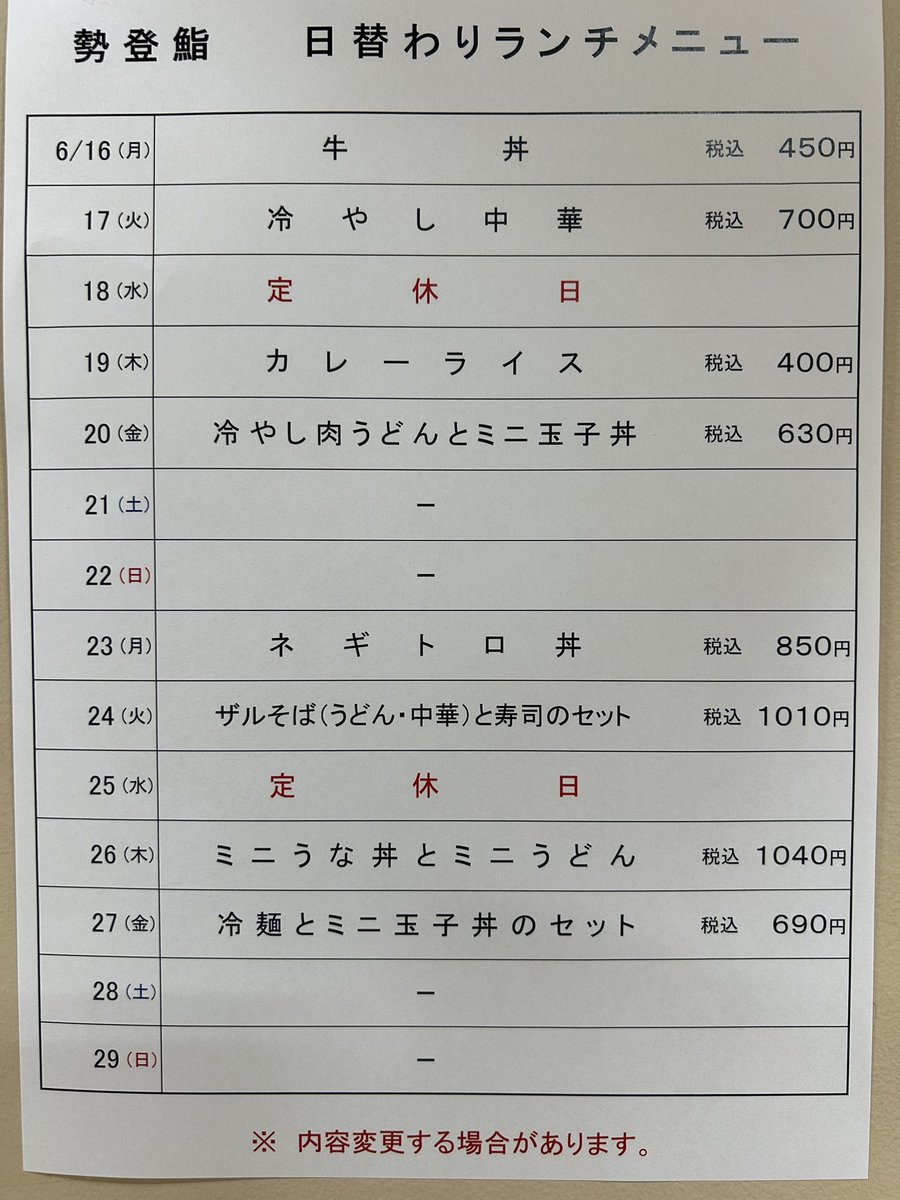 勢登鮨 日替わりランチメニュー
6/16(月) 牛丼 税込 450円
17(火) 冷やし中華 税込 700円
18(水) 定休日
19(木) カレーライス 税込 400円
20(金) 冷やし肉うどんとミニ玉子丼 税込 630円
21(土) −
22(日) −
23(月) ネギトロ丼 税込 850円
24(火) ザルそば(うどん・中華)と寿司のセット 税込 1010円
25(水) 定休日
26(木) ミニうな丼とミニうどん 税込 1040円
27(金) 冷麺とミニ玉子丼のセット 税込 690円
28(土) −
29(日) −
※ 内容変更する場合があります。